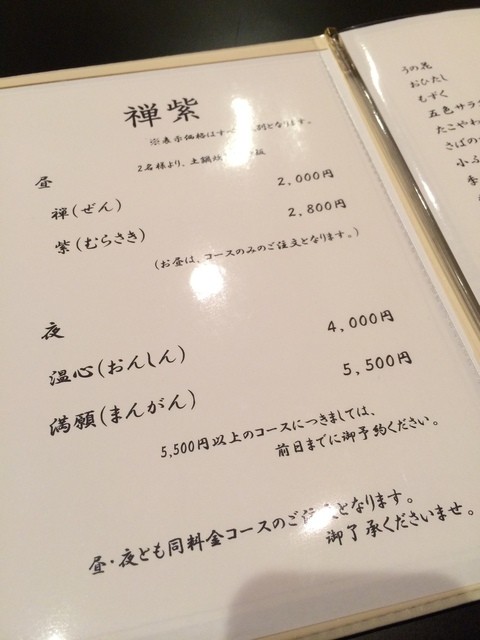 禅紫
※表示価格はすべ 別となります。
2名様より、土鍋
昼
禅(ぜん) 2,000円
紫(むらさき) 2,800円
(お昼は、コースのみのご注文となります。)
夜
温心(おんしん) 4,000円
満願(まんがん) 5,500円
5,500円以上のコースにつきましては、
前日までに御予約ください。
昼・夜とも同料金コースのご注文となります。
御了承くださいませ。
うの花
おひたし
もずく
五色サラ
たこやわ
さばの
小ふ